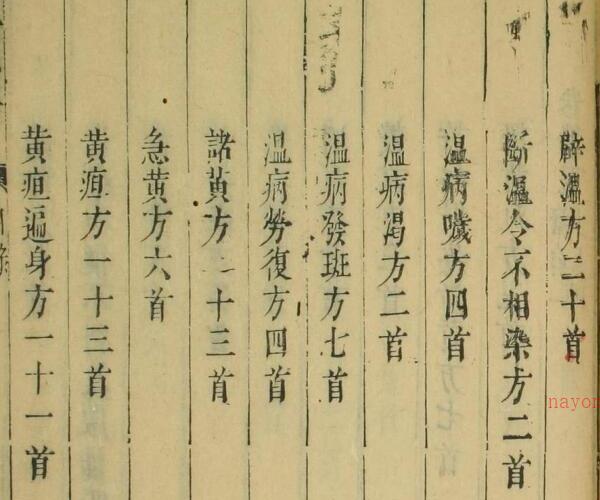 辟溫方二十首
斷溫令不相染方二首
溫病噦方四首
溫病渴方二首
溫病發斑方七首
溫病勞復方四首
諸黃方 十三首
急黃方六首
黃疸方一十三首
黃疸遍身方一十一首
nayon